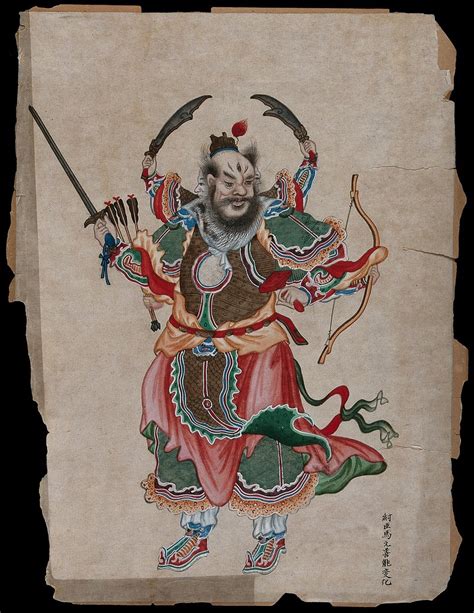 紂臣馬元善能變化